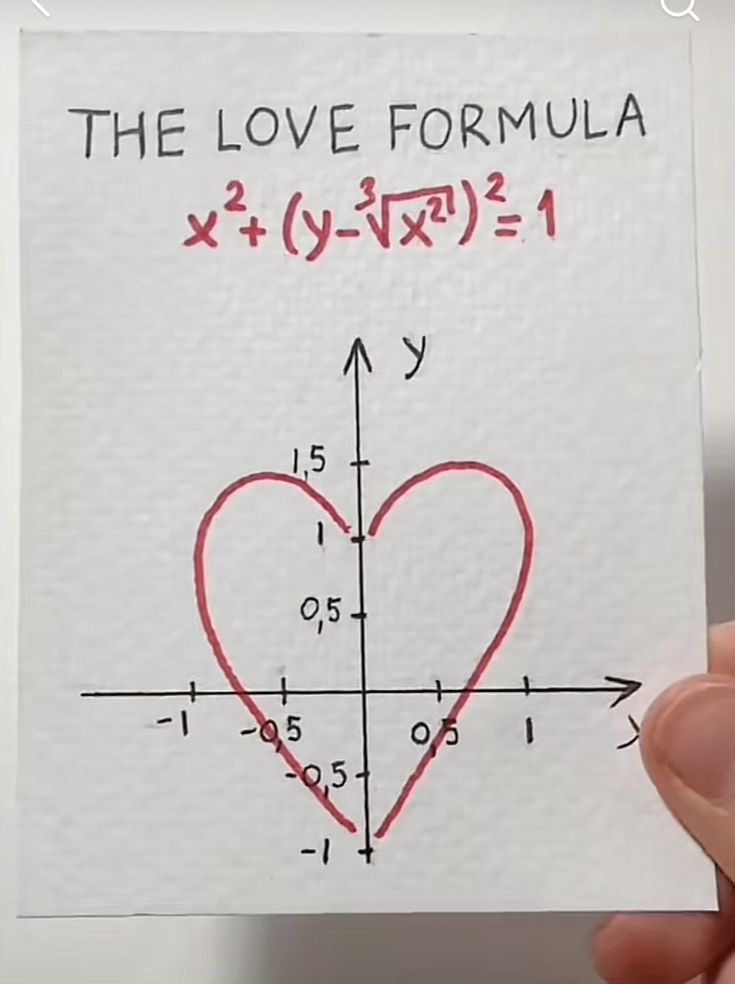 THE LOVE FORMULA
x²+(y-∛x²)²=1
y
1,5
1
0,5
-1 -0,5 0,5 1
-0,5
-1